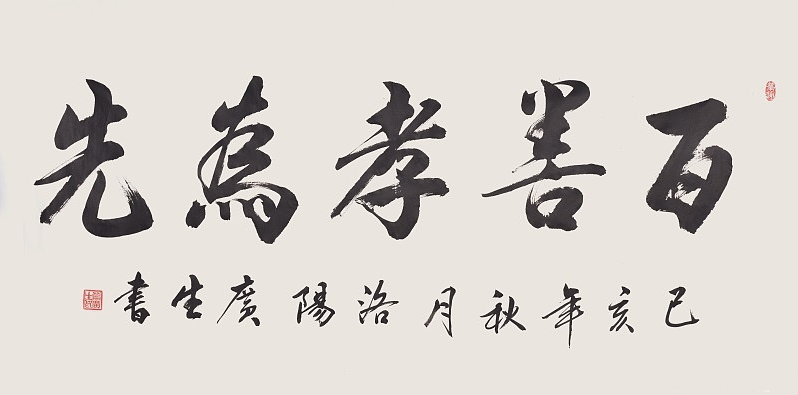 百善孝為先
己亥年秋月洛陽廣生書